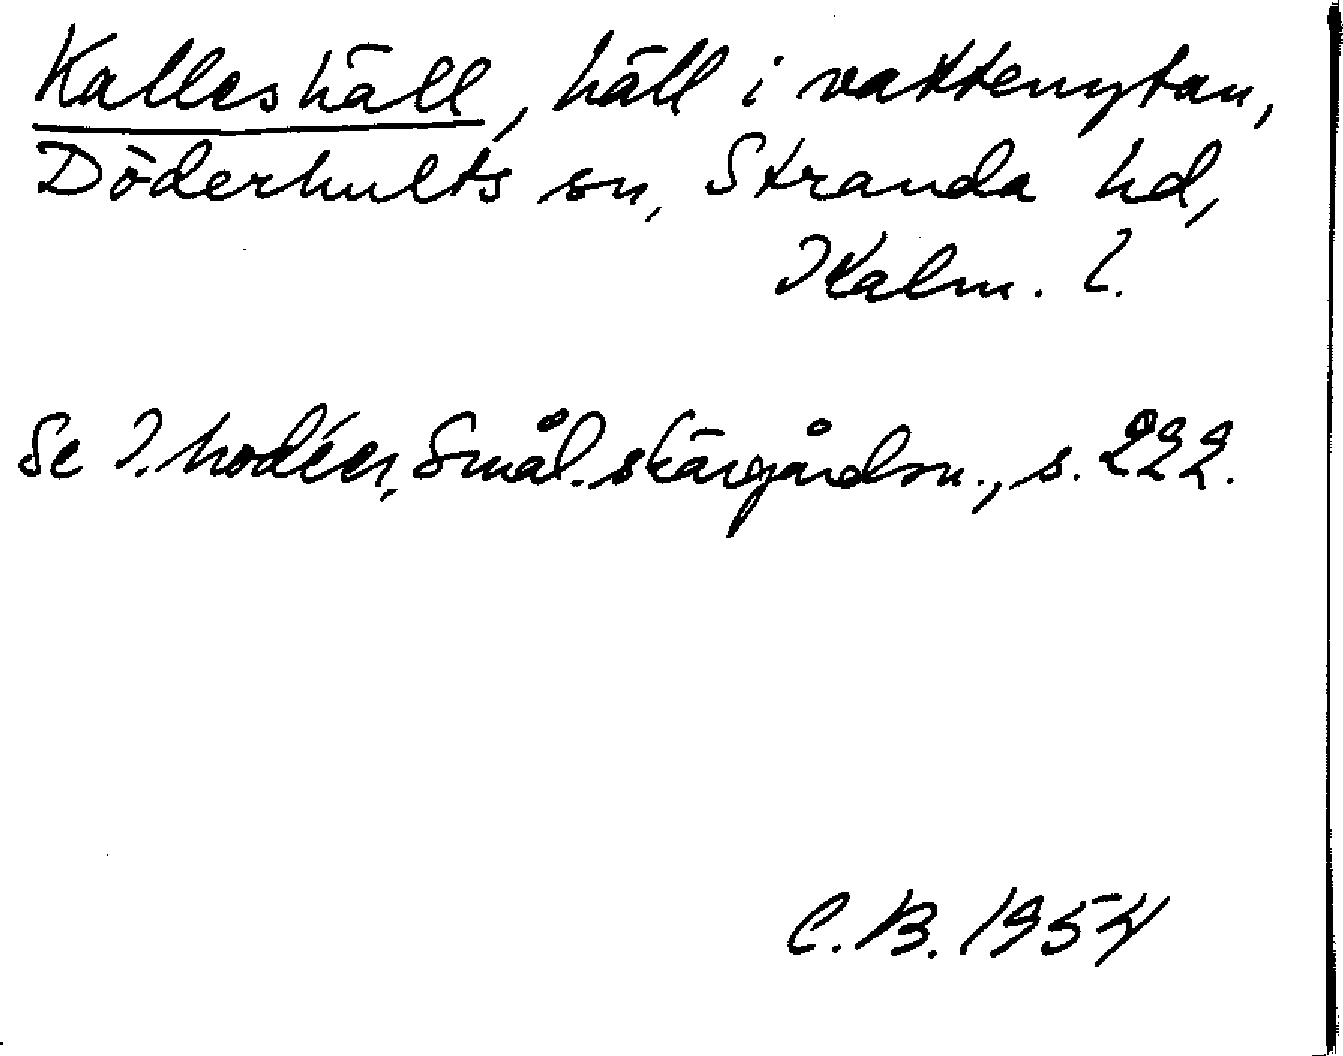 Kalleshäll, häll i vattenytan,
Döderhults sn, Stranda hd,
Kalm. l.
Se I. Modéer, Smål. skärgårdsn., s. 222.
C.B. 1954